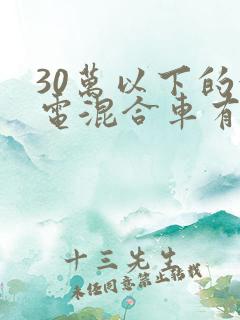 30萬以下的
電混合車有
十三先生
未经同意禁止转载